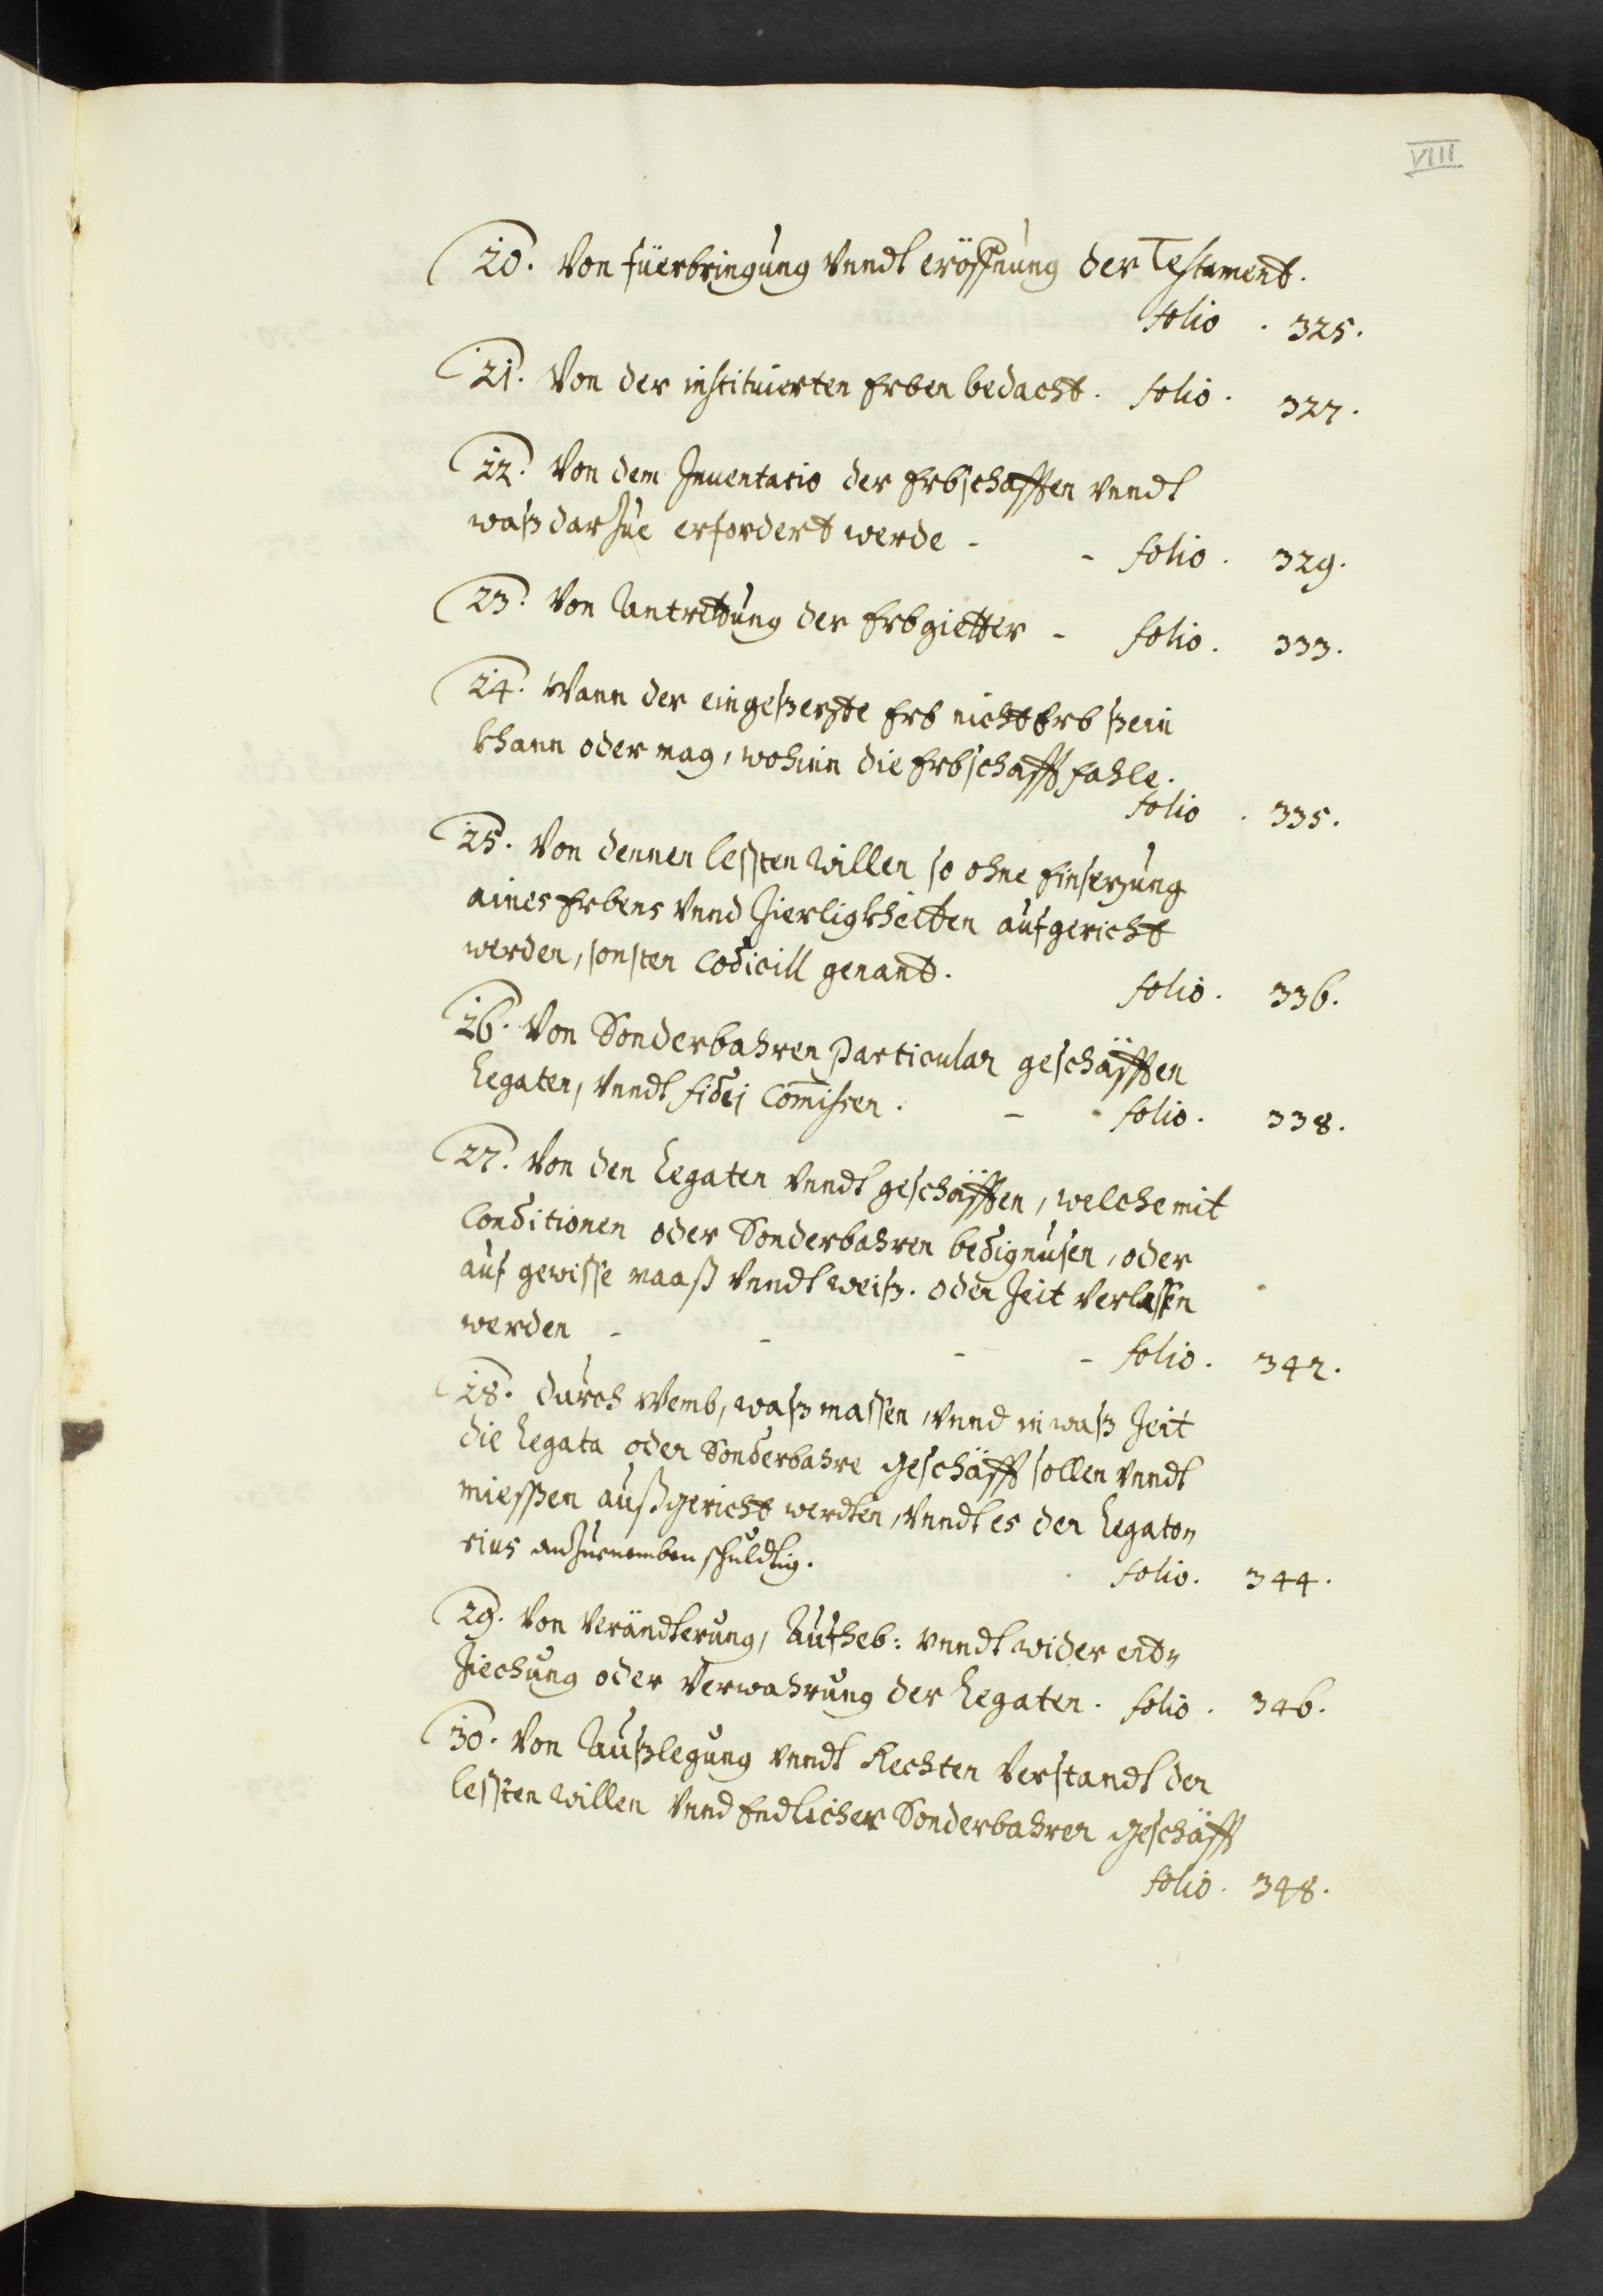 VIII
20. Von füerbringung Vnndt eröffnung der Testament.
folio . 325.
21. Von der instituierten Erben bedacht. folio. 327.
22. Von dem Inventario der Erbschafften vnndt
waß darzue erfordert werde - - folio. 329.
23. Von Antrettung der Erbgietter - folio. 333.
24. Wann der eingeßezte Erb nicht Erb ßein
khann oder mag, wohinn die Erbschafft fahle.
folio . 335.
25. Von dennen lessten willen so ohne Einsezung
aines Erbens Vnnd Zierligkheitten aufgericht
werden, sonsten Codicill genant.
folio. 336.
26. Von Sonderbahren Particular geschäfften
Legaten, Vnndt fidej Com̄issen. - - folio. 338.
27. Von den Legaten Vnndt geschäfften, welche mit
Conditionen oder Sonderbahren bedignusen, oder
auf gewisse maaß Vnndt weiß. oder Zeit Verlassen
werden - - - - folio. 342.
28. durch Wemb, waß massen, Vnnd in waß Zeit
die Legata oder Sonderbahre geschäfft sollen Vnndt
miessen außgericht werdten, Vnndt es der Legato„
rius anzuenemben schuldtig. folio. 344.
29. Von Verändterung, Aufheb: vnndt wider ent„
Ziechung oder Verwahrung der Legaten. folio. 346.
30. Von Außlegung vnndt Rechten Verstandt der
lessten willen Vnnd Endlicher Sonderbahrer geschäfft
folio. 348.